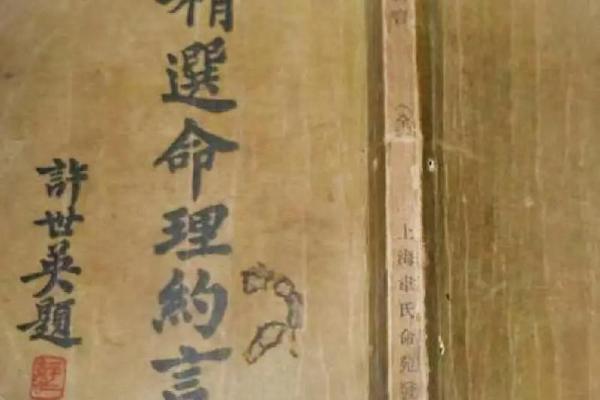 精選命理約言
許世英題
(全)
上海韋氏命苑發